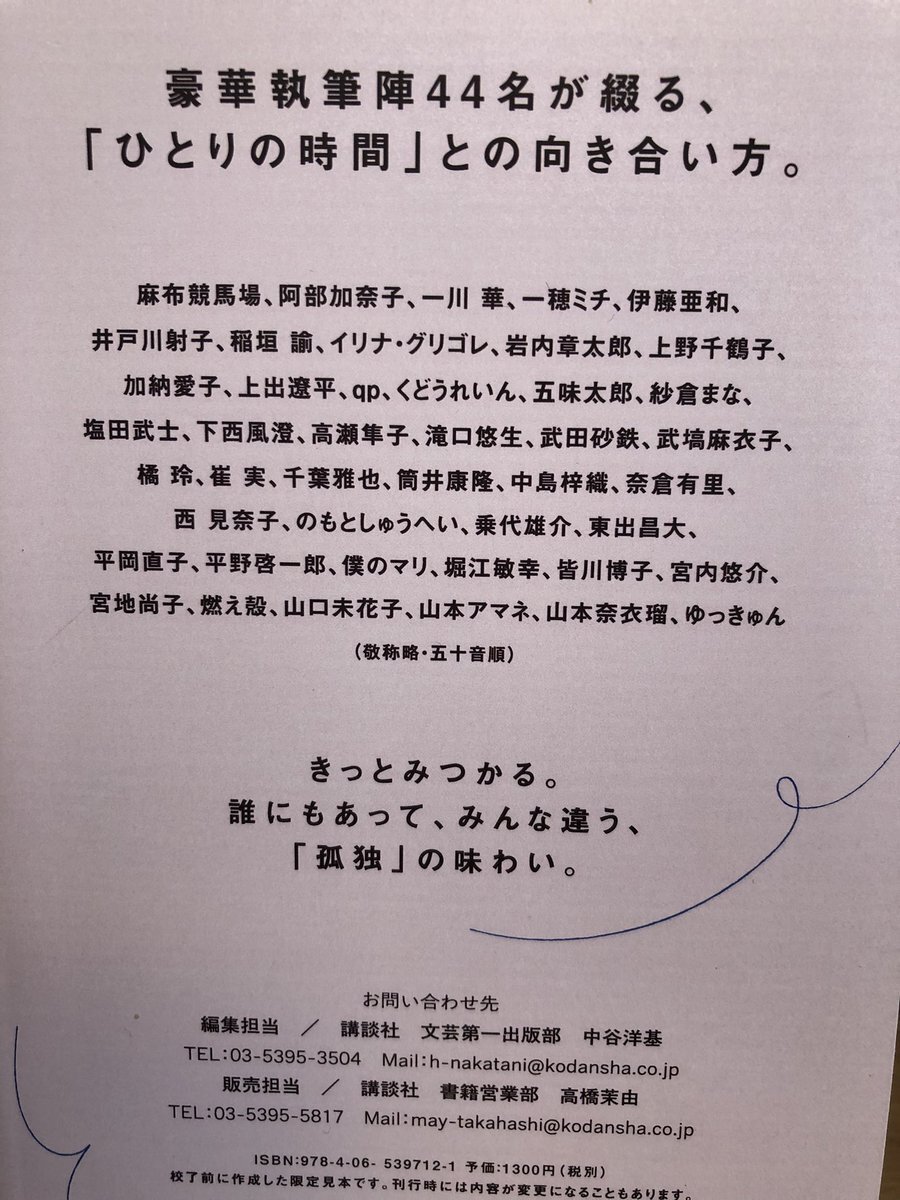 豪華執筆陣44名が綴る、
「ひとりの時間」との向き合い方。
麻布競馬場、阿部加奈子、一川 華、一穂ミチ、伊藤亜和、
井戸川射子、稲垣 諭、イリナ・グリゴレ、岩内章太郎、上野千鶴子、
加納愛子、上出遼平、qp、くどうれいん、五味太郎、紗倉まな、
塩田武士、下西風澄、高瀬隼子、滝口悠生、武田砂鉄、武塙麻衣子、
橘 玲、崔 実、千葉雅也、筒井康隆、中島梓織、奈倉有里、
西 見奈子、のもとしゅうへい、乗代雄介、東出昌大、
平岡直子、平野啓一郎、僕のマリ、堀江敏幸、皆川博子、宮内悠介、
宮地尚子、燃え殻、山口未花子、山本アマネ、山本奈衣瑠、ゆっきゅん
（敬称略・五十音順）
きっとみつかる。
誰にもあって、みんな違う、
「孤独」の味わい。
お問い合わせ先
編集担当 ／ 講談社 文芸第一出版部 中谷洋基
TEL：03-5395-3504 Mail：h-nakatani@kodansha.co.jp
販売担当 ／ 講談社 書籍営業部 高橋茉由
TEL：03-5395-5817 Mail：may-takahashi@kodansha.co.jp
ISBN：978-4-06- 539712-1 予価：1300円（税別）
校了前に作成した限定見本です。刊行時には内容が変更になることもあります。